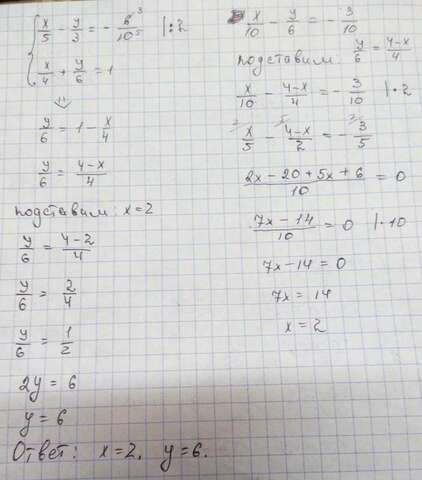 x/5 - y/3 = - 6³/10⁵ |:2
x/4 + y/6 = 1
⇓
y/6 = 1 - x/4
y/6 = (4-x)/4
подставим: x=2
y/6 = (4-2)/4
y/6 = 2/4
y/6 = 1/2
2y = 6
y = 6
Ответ: x=2, y=6.
x/10 - y/6 = - 3/10
подставим: y/6 = (4-x)/4
x/10 - (4-x)/4 = - 3/10 |·2
x/5 - (4-x)/2 = - 3/5
(2x - 20 + 5x + 6)/10 = 0
(7x - 14)/10 = 0 |·10
7x-14 = 0
7x = 14
x = 2